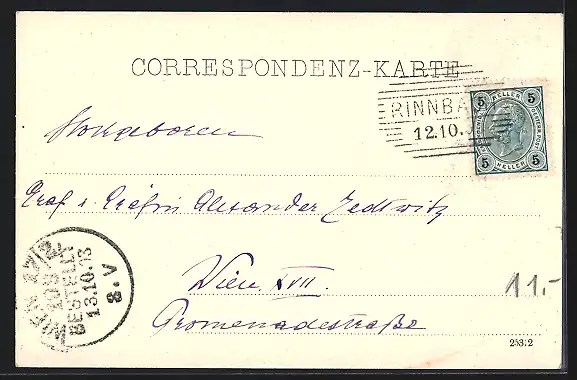 CORRESPONDENZ-KARTE
RINNBA
12.10.
5 HELLER 5
5 HELLER 5
Hochgeboren
Graf u. Gräfin Alexander Zedtwitz
Wien XVII.
Promenadestraße
WIEN
BESTELLT
13.10.03
8.V
11.-
25332